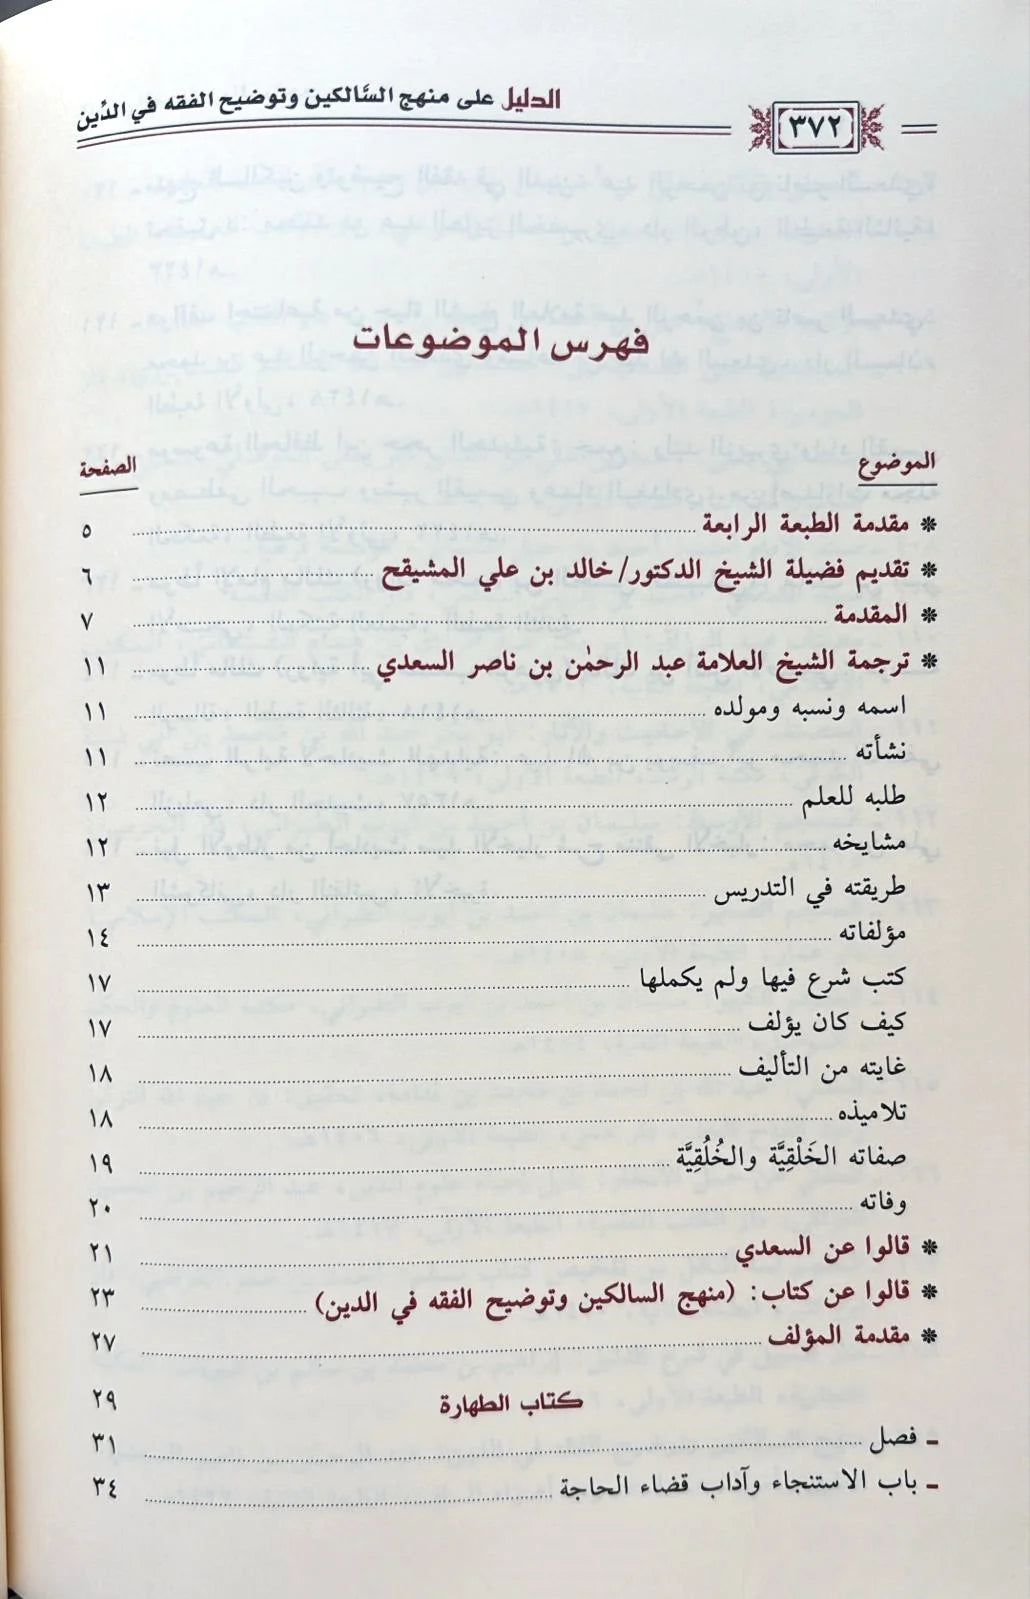 ٣٧٢
الدليل على منهج السَّالكين وتوضيح الفقه في الدِّين
فهرس الموضوعات
الموضوع الصفحة
* مقدمة الطبعة الرابعة ٥
* تقديم فضيلة الشيخ الدكتور/ خالد بن علي المشيقح ٦
* المقدمة ٧
* ترجمة الشيخ العلامة عبد الرحمٰن بن ناصر السعدي ١١
اسمه ونسبه ومولده ١١
نشأته ١١
طلبه للعلم ١٢
مشايخه ١٢
طريقته في التدريس ١٣
مؤلفاته ١٤
كتب شرع فيها ولم يكملها ١٧
كيف كان يؤلف ١٧
غايته من التأليف ١٨
تلاميذه ١٨
صفاته الخَلْقِيَّة والخُلُقِيَّة ١٩
وفاته ٢٠
* قالوا عن السعدي ٢١
* قالوا عن كتاب: (منهج السالكين وتوضيح الفقه في الدين) ٢٣
* مقدمة المؤلف ٢٧
كتاب الطهارة ٢٩
ـ فصل ٣١
ـ باب الاستنجاء وآداب قضاء الحاجة ٣٤